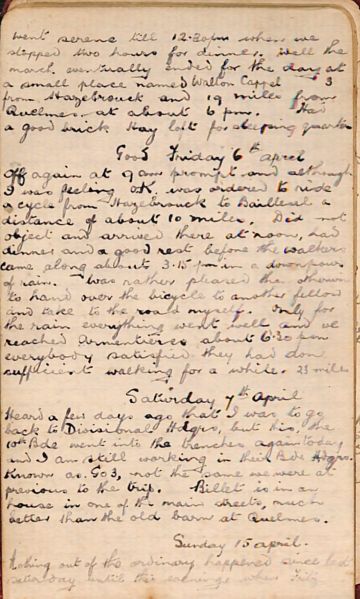 went serene till 12.30pm when we
stopped two hours for dinner. Well the
march eventually ended for the day at
a small place named Wallon Cappel 3
from Hazebrouck and 19 miles from
Quelmes at about 6 pm. Had
a good brick Hay loft for sleeping quarters
Good Friday 6th April
Off again at 9am prompt and although
I was feeling OK was ordered to ride
a cycle from Hazebrouck to Bailleul a
distance of about 10 miles. Did not
object and arrived there at noon, had
dinner and a good rest before the walkers
came along about 3.15 pm in a downpour
of rain. Was rather pleased the
to hand over the bicycle to another fellow
and take to the road myself. Only for
the rain everything went well and we
reached Armentieres about 6.30 pm
everybody satisfied they had done
sufficient walking for a while. 23 miles
Saturday 7th April
Heard a few days ago that I was to go
back to Divisional Hdqrs, but his the
10th Bde went into the trenches again today
and I am still working in their Bde Hdqrs.
Known as. Go3, not the same we were at
previous to the trip. Billet is in an
house in one of the main streets, much
better than the old barn at Quelmes.
Sunday 15 April.
Nothing out of the ordinary happened since last
Saturday until this evening when Fritz